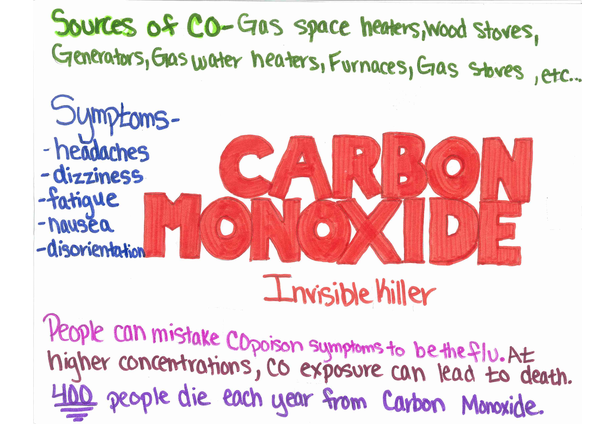 Sources of CO- Gas space heaters, Wood stoves,
Generators, Gas water heaters, Furnaces, Gas stoves, etc...
Symptoms-
- headaches
- dizziness
- fatigue
- nausea
- disorientation
CARBON
MONOXIDE
Invisible Killer
People can mistake CO poison symptoms to be the flu. At
higher concentrations, CO exposure can lead to death.
400 people die each year from Carbon Monoxide.